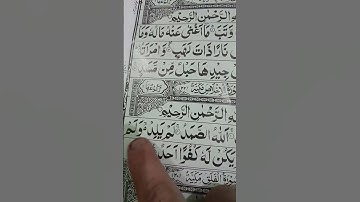 ـهِ الرَّحْمٰنِ الرَّحِيْمِ
وَّتَبَّ مَا اَغْنٰى عَنْهُ مَالُهٗ وَمَا
نَارًا ذَاتَ لَهَبٍ وَّامْرَاَتُهٗ
جِيْدِهَا حَبْلٌ مِّنْ مَّسَدٍ
ـهِ الرَّحْمٰنِ الرَّحِيْمِ
اَللّٰهُ الصَّمَدُ لَمْ يَلِدْ وَلَمْ
يَكُنْ لَّهٗ كُفُوًا اَحَدٌ
سُوْرَةُ الْفَلَقِ